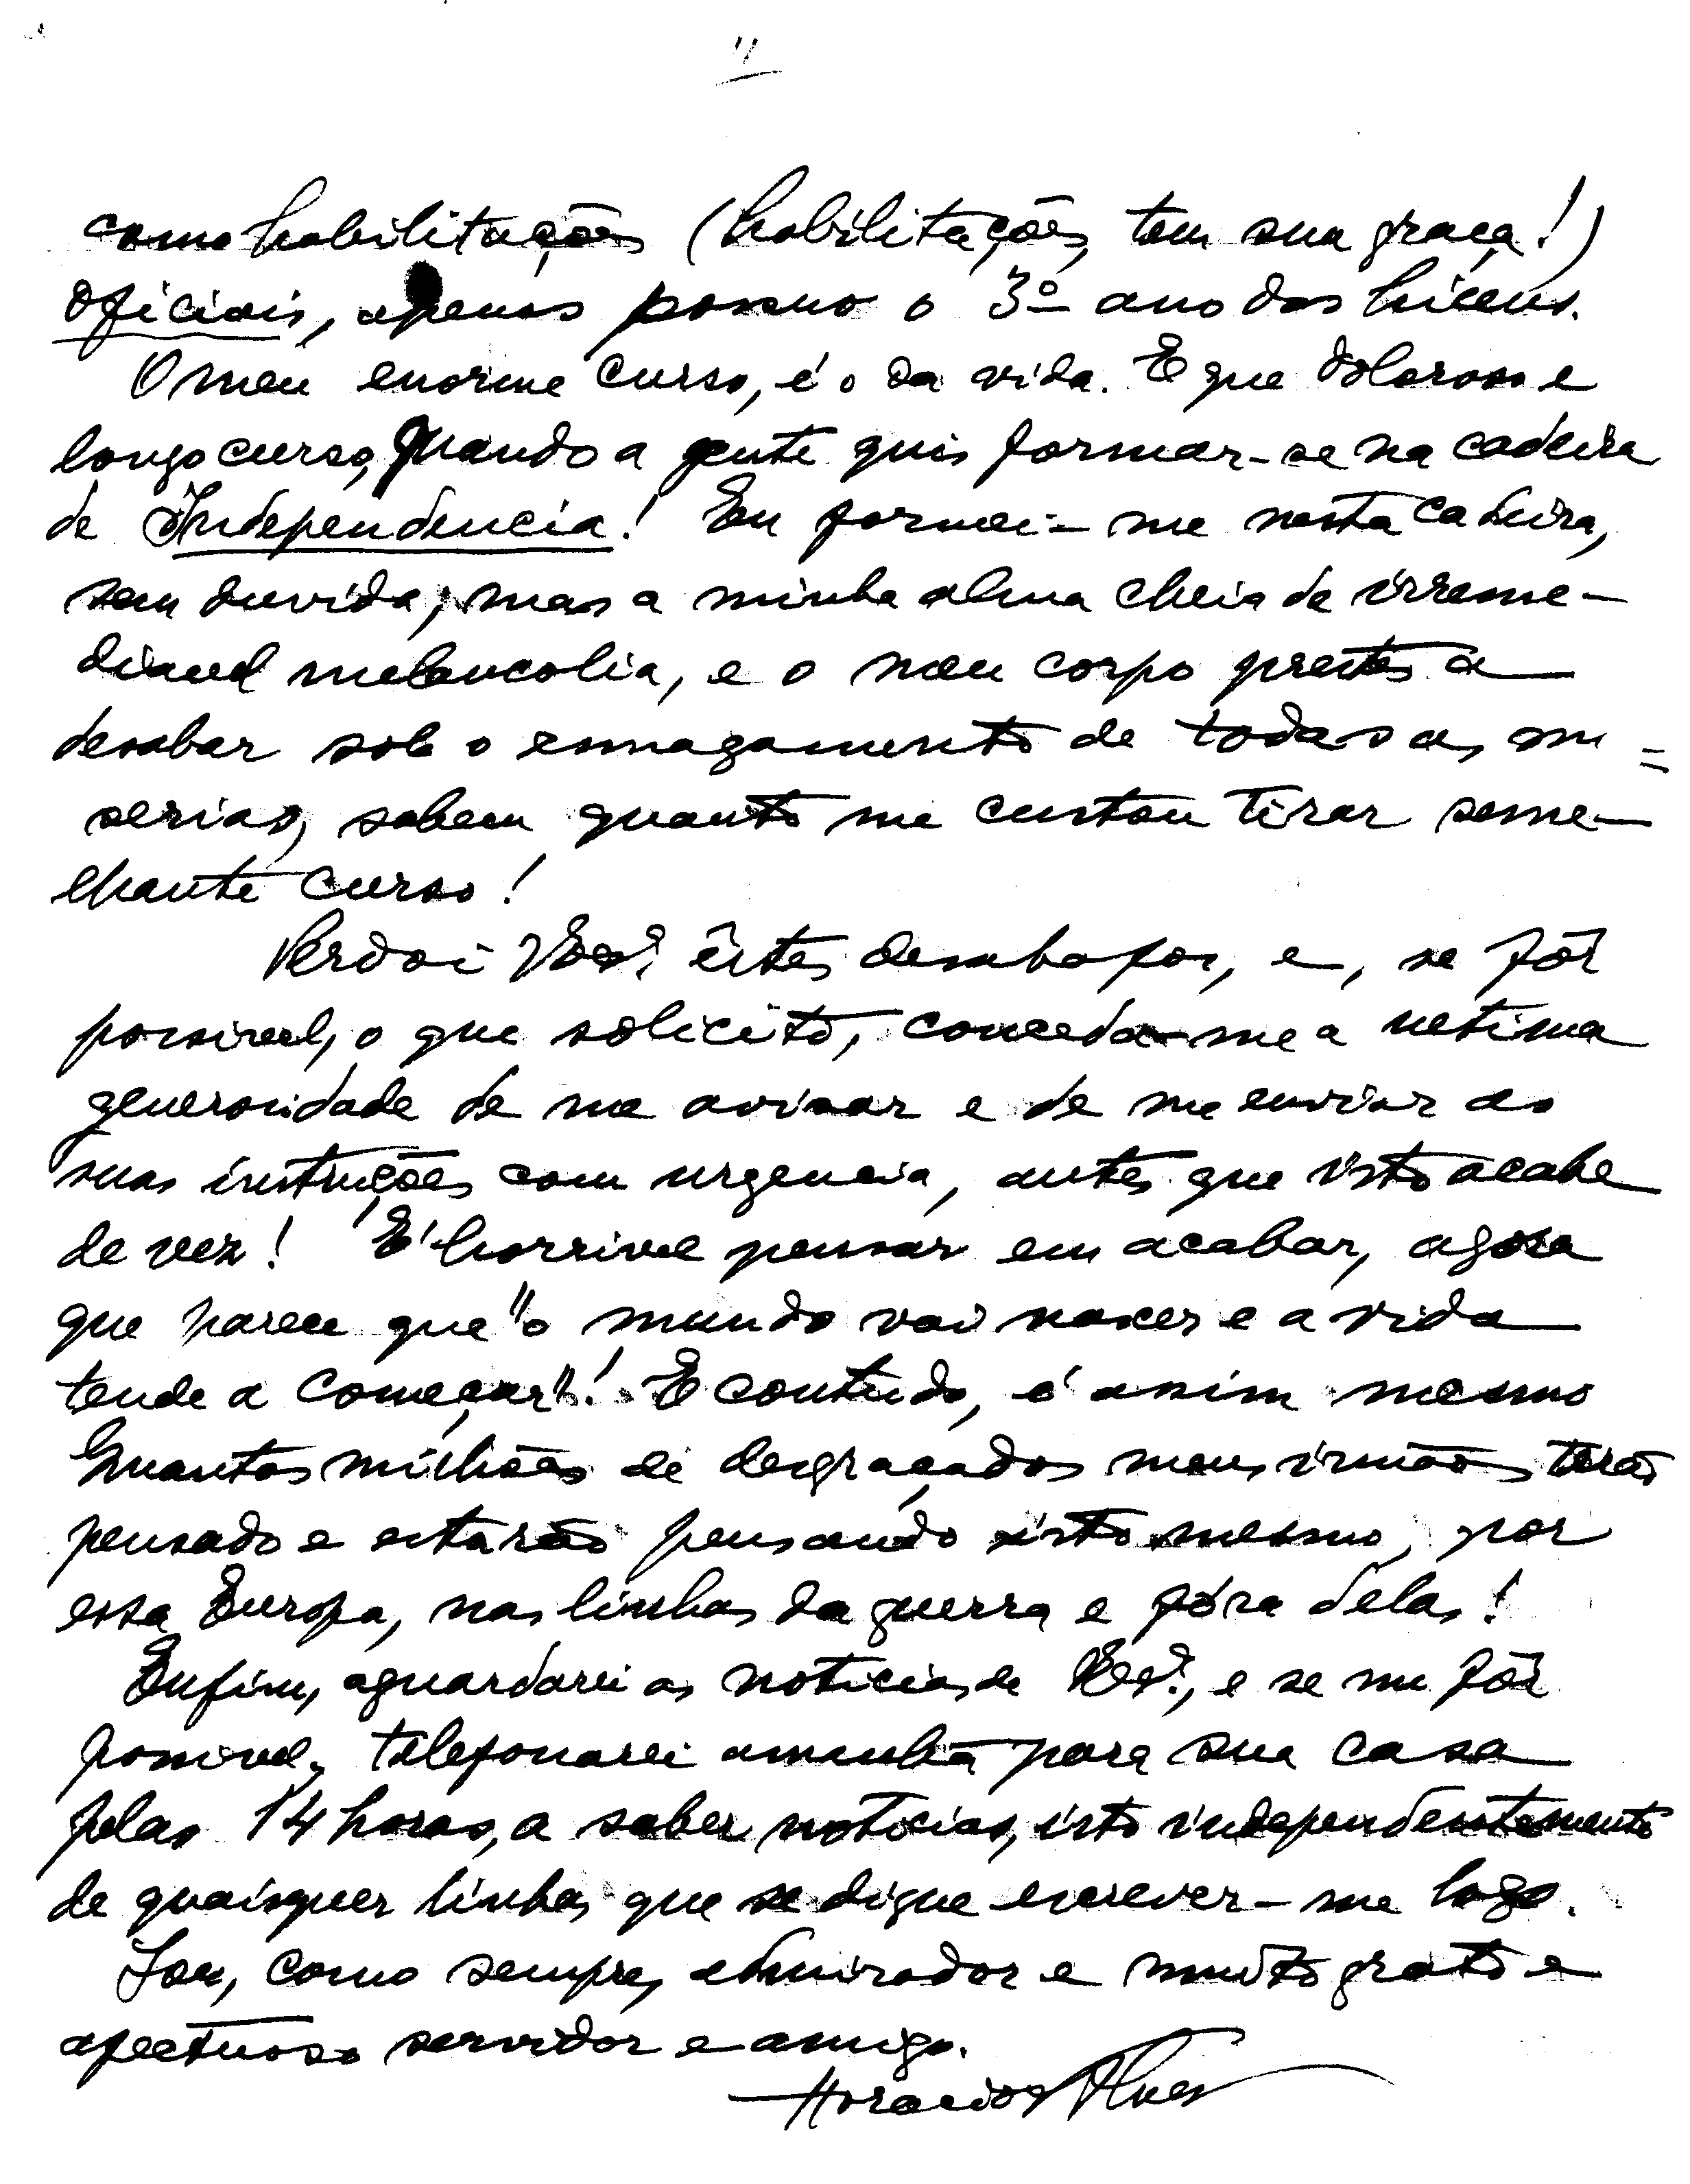 como habilitações (habilitações, tem sua graça!)
oficiais, apenas possuo o 3º ano dos liceus.
O meu enorme curso, é o da vida. E que doloroso e
longo curso, quando a gente quis formar-se na cadeira
de Independencia! Eu formei-me nesta cadeira,
sem duvida, mas a minha alma cheia de irreme-
diavel melancolia, e o meu corpo prestes a
desabar sob o esmagamento de todas as mi=
serias, sabem quanto me custou tirar seme-
lhante curso!
Perdoi V. Exª. êstes desabafos, e, se fôr
possivel, o que solicito, conceda-me a ultima
generosidade de me avisar e de me enviar as
suas instruções com urgencia, antes que isto acabe
de vez! É horrivel pensar em acabar, agora
que parece que "o mundo vai nascer e a vida
tende a começar"! E contudo, é assim mesmo
Quantos milhões de desgraçados meus irmãos terão
pensado e estarão pensando isto mesmo, por
essa Europa, nas linhas da guerra e fóra delas!
Enfim, aguardarei as noticias de V. Exª., e se me fôr
possivel, telefonarei amanhã para sua casa
pelas 14 horas, a saber noticias, isto independentemente
de quaisquer linhas que se digne escrever-me logo.
Sou, como sempre, admirador e muito grato e
afectuoso servidor e amigo.
Horacio Alves